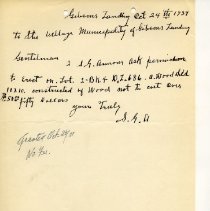 Gibsons Landing Oct 24th 1939
to the Village Municipality of Gibsons Landing
Gentleman I S.G. Armour Ask permission
to Erect on. Lot. 2-Bk 4 D.L. 686. a Wood Shed
10x20. constructed of Wood not to cost over
$50.00 fifty Dollars
yours Truly
S. G. A
Granted Oct
No